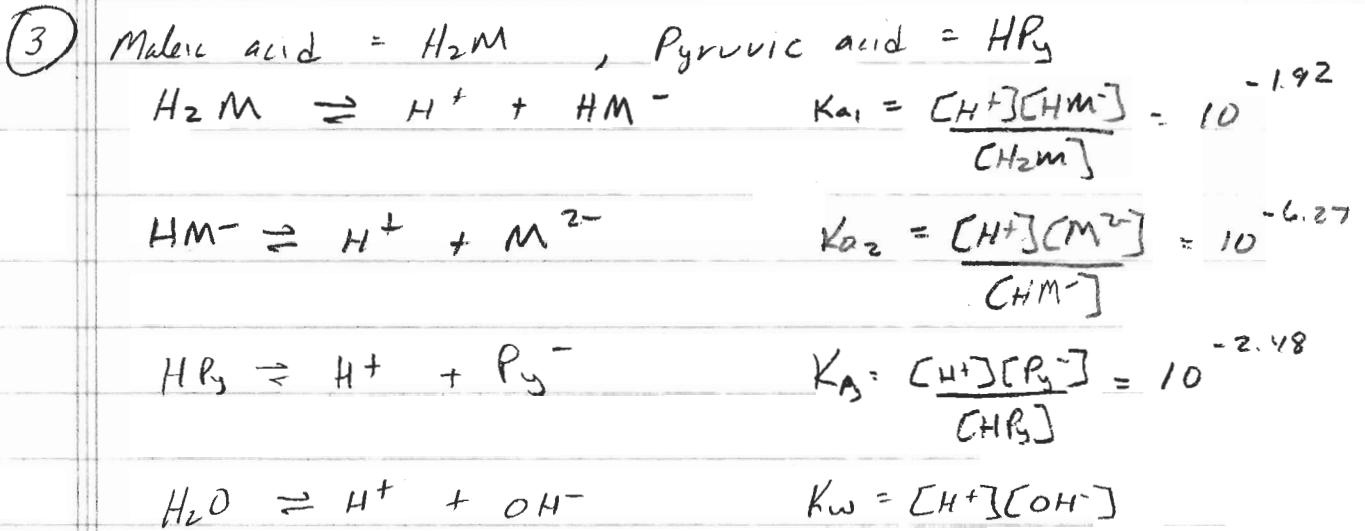 ③ Maleic acid = H₂M , Pyruvic acid = HPy
H₂M ⇌ H⁺ + HM⁻ Ka₁ = [H⁺][HM⁻] / [H₂M] = 10^-1.92
HM⁻ ⇌ H⁺ + M²⁻ Ka₂ = [H⁺][M²⁻] / [HM⁻] = 10^-6.27
HPy ⇌ H⁺ + Py⁻ KA = [H⁺][Py⁻] / [HPy] = 10^-2.48
H₂O ⇌ H⁺ + OH⁻ Kw = [H⁺][OH⁻]